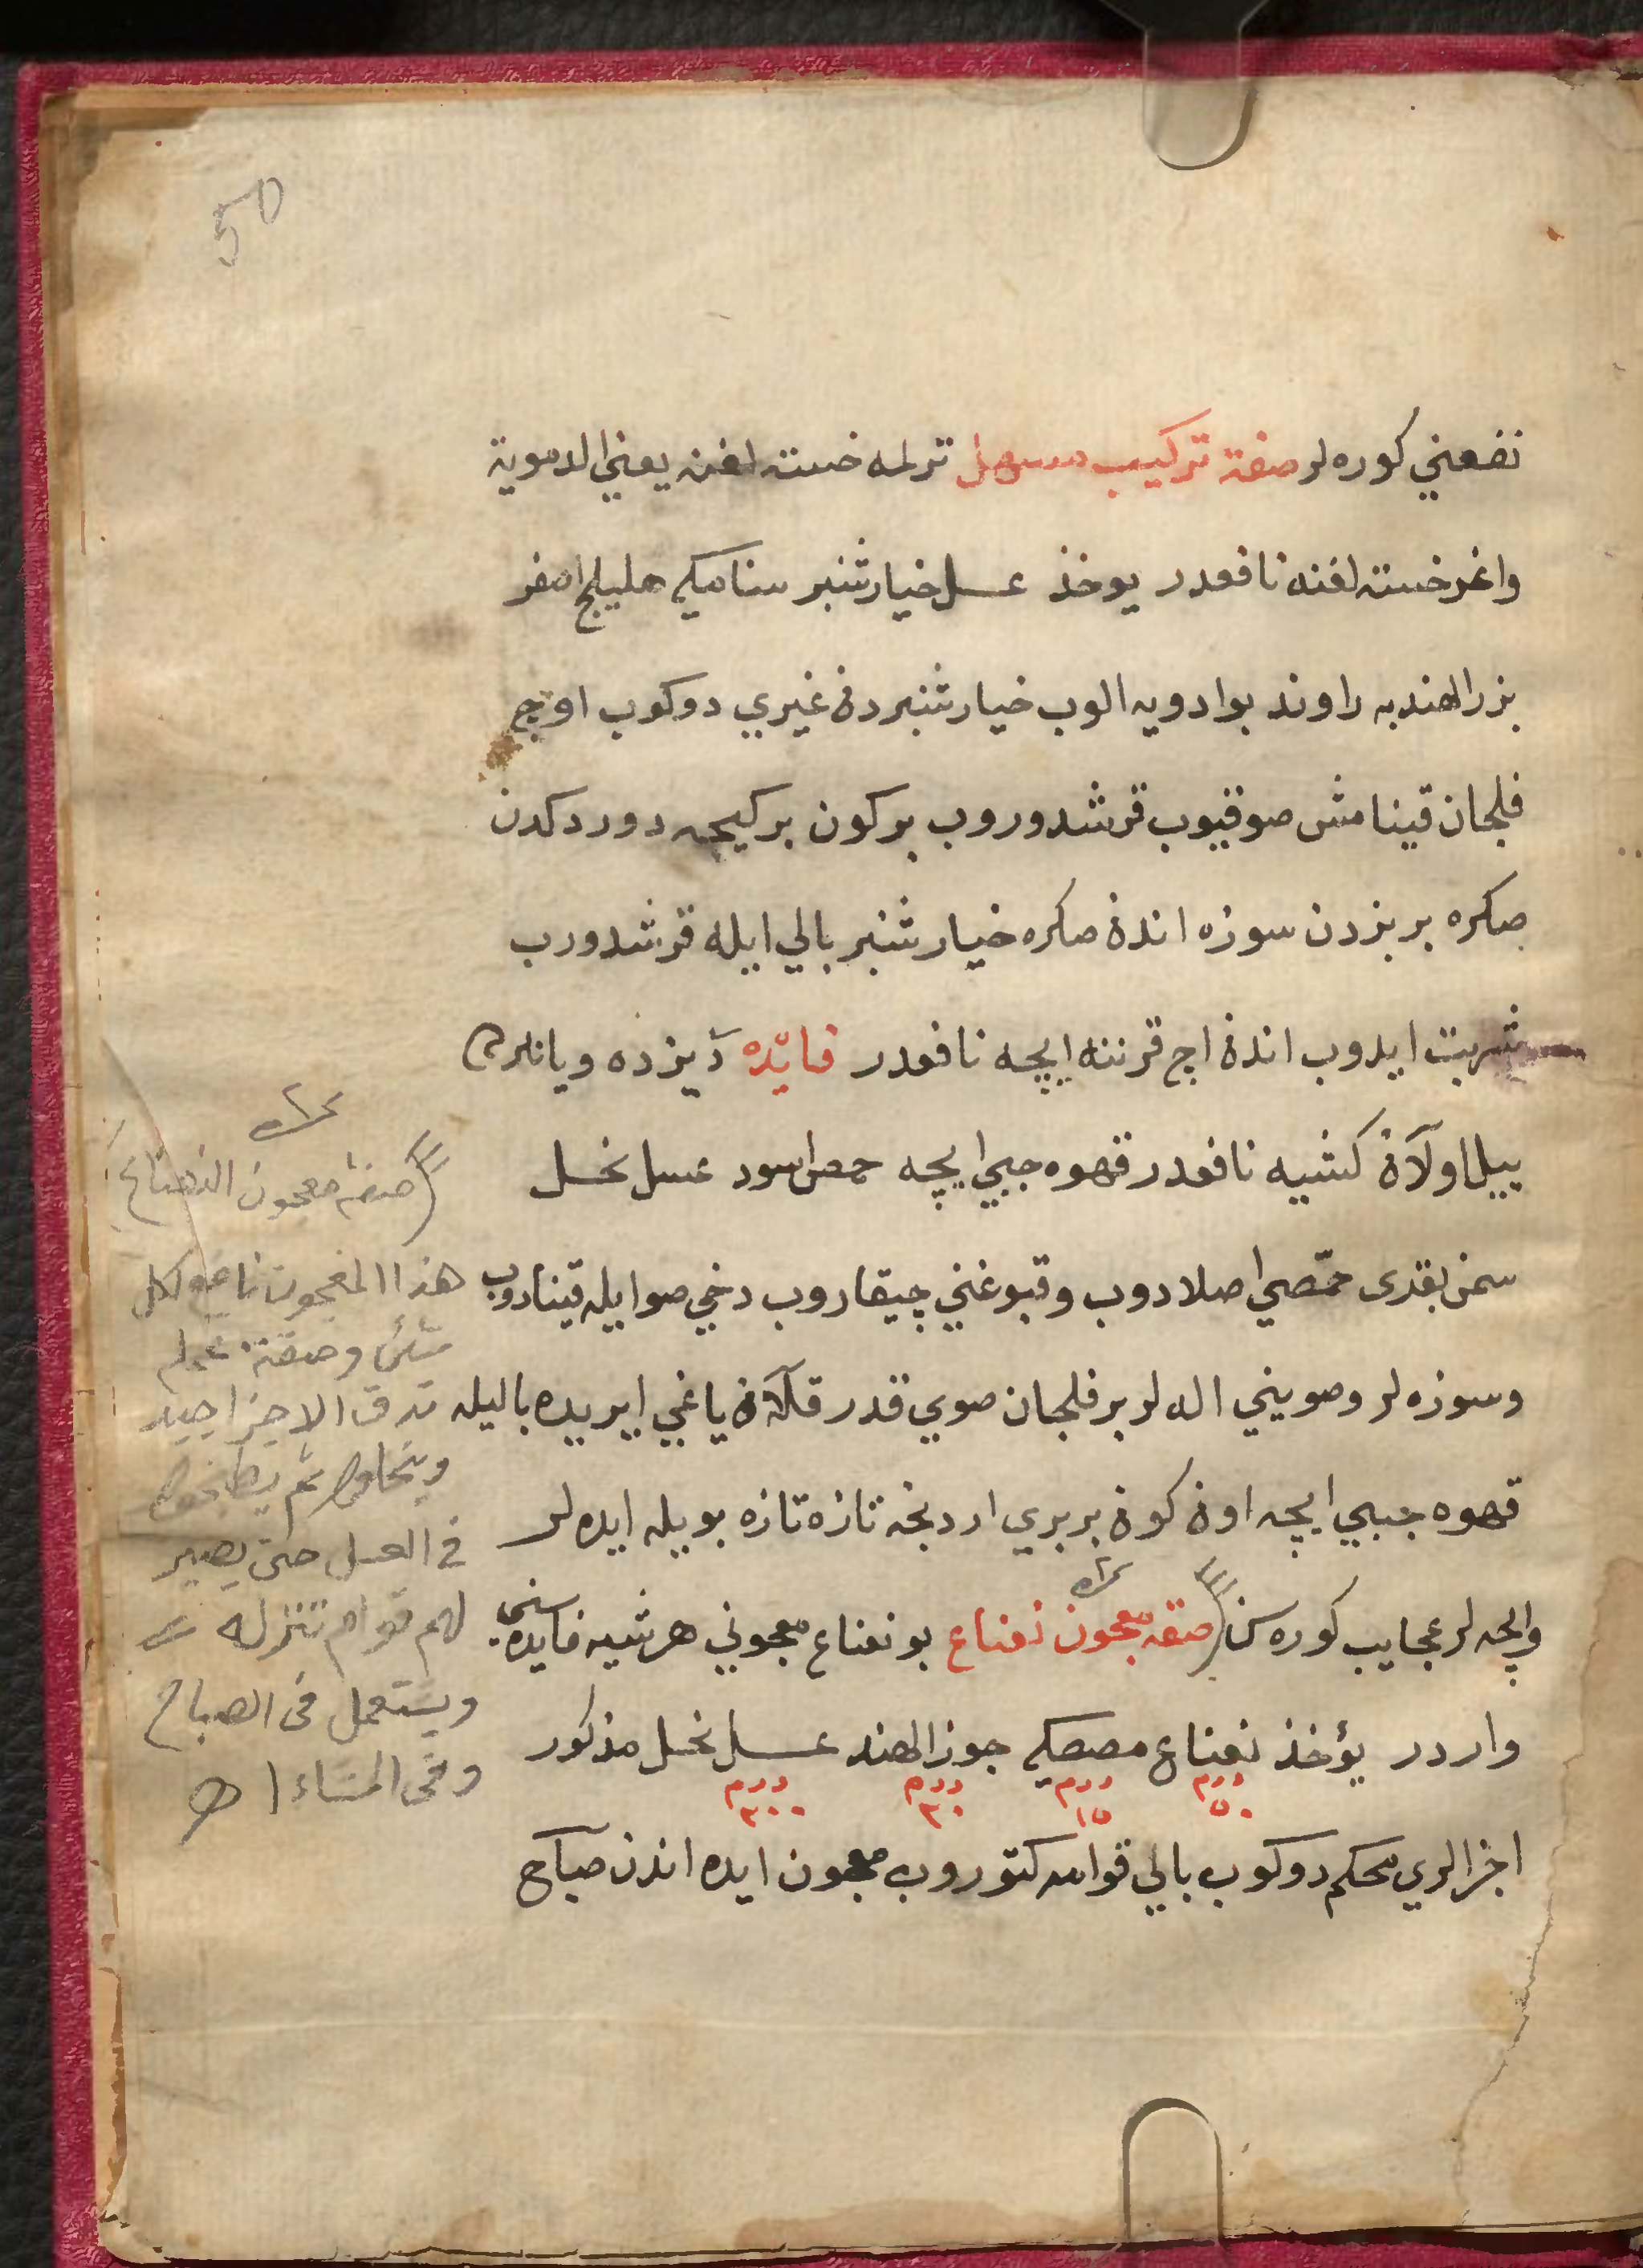 50
نفعني كوره لر صفة تركيب مسهل ترلمه خسته لغنه يعني الدموية
واغر خسته لغنه نافعدر يوخذ عسل خيار شنبر سنامكي هليلج اصفر
بزر الهندبه راوند بو ادويه الوب خيار شنبردن غيري دوكوب اوچ
فلجان قينامش صو قيوب قرشدوروب بر كون بر كيجه دوردكدن
صكره بر بزدن سوزه اندن صكره خيار شنبر بالي ايله قرشدورب
شربت ايدوب اندن اج قرننه ايچه نافعدر فايده ديزده ويانلرده
ييل اولان كشيه نافعدر قهوه جبي ايچه حمص اسود عسل نحل
سمن بقدى حمّصي اصلادوب وقبوغني چيقاروب دخي صوايله قينادوب
وسوزه لر وصويني اله لر بر فلجان صوي قدر قلان ياغي ايريده باليله
قهوه جبي ايچه اون كون بربري اردنجه تازه تازه بويله ايده لر
وايچه لر عجايب كوره سن صفه معجون نعناع بو نعناع معجوني هر شيه فايده سي
واردر يؤخذ نعناع مصصكي جوز الهند عسل نحل مذكور
درم ٥٠ درم ١٥ درم ٣٠ درم ٣٠٠
اجزالري محكم دوكوب بالي قوامه كتوروب معجون ايده اندن صباح
صفة معجون النعناع
هذا المعجون نافع لكل
شئ وصفة عمله
تدق الاجزا جيد
ثم
في العسل حتى يصير
لهم قوام تنزله
ويستعمل في الصباح
وفي المساء اه